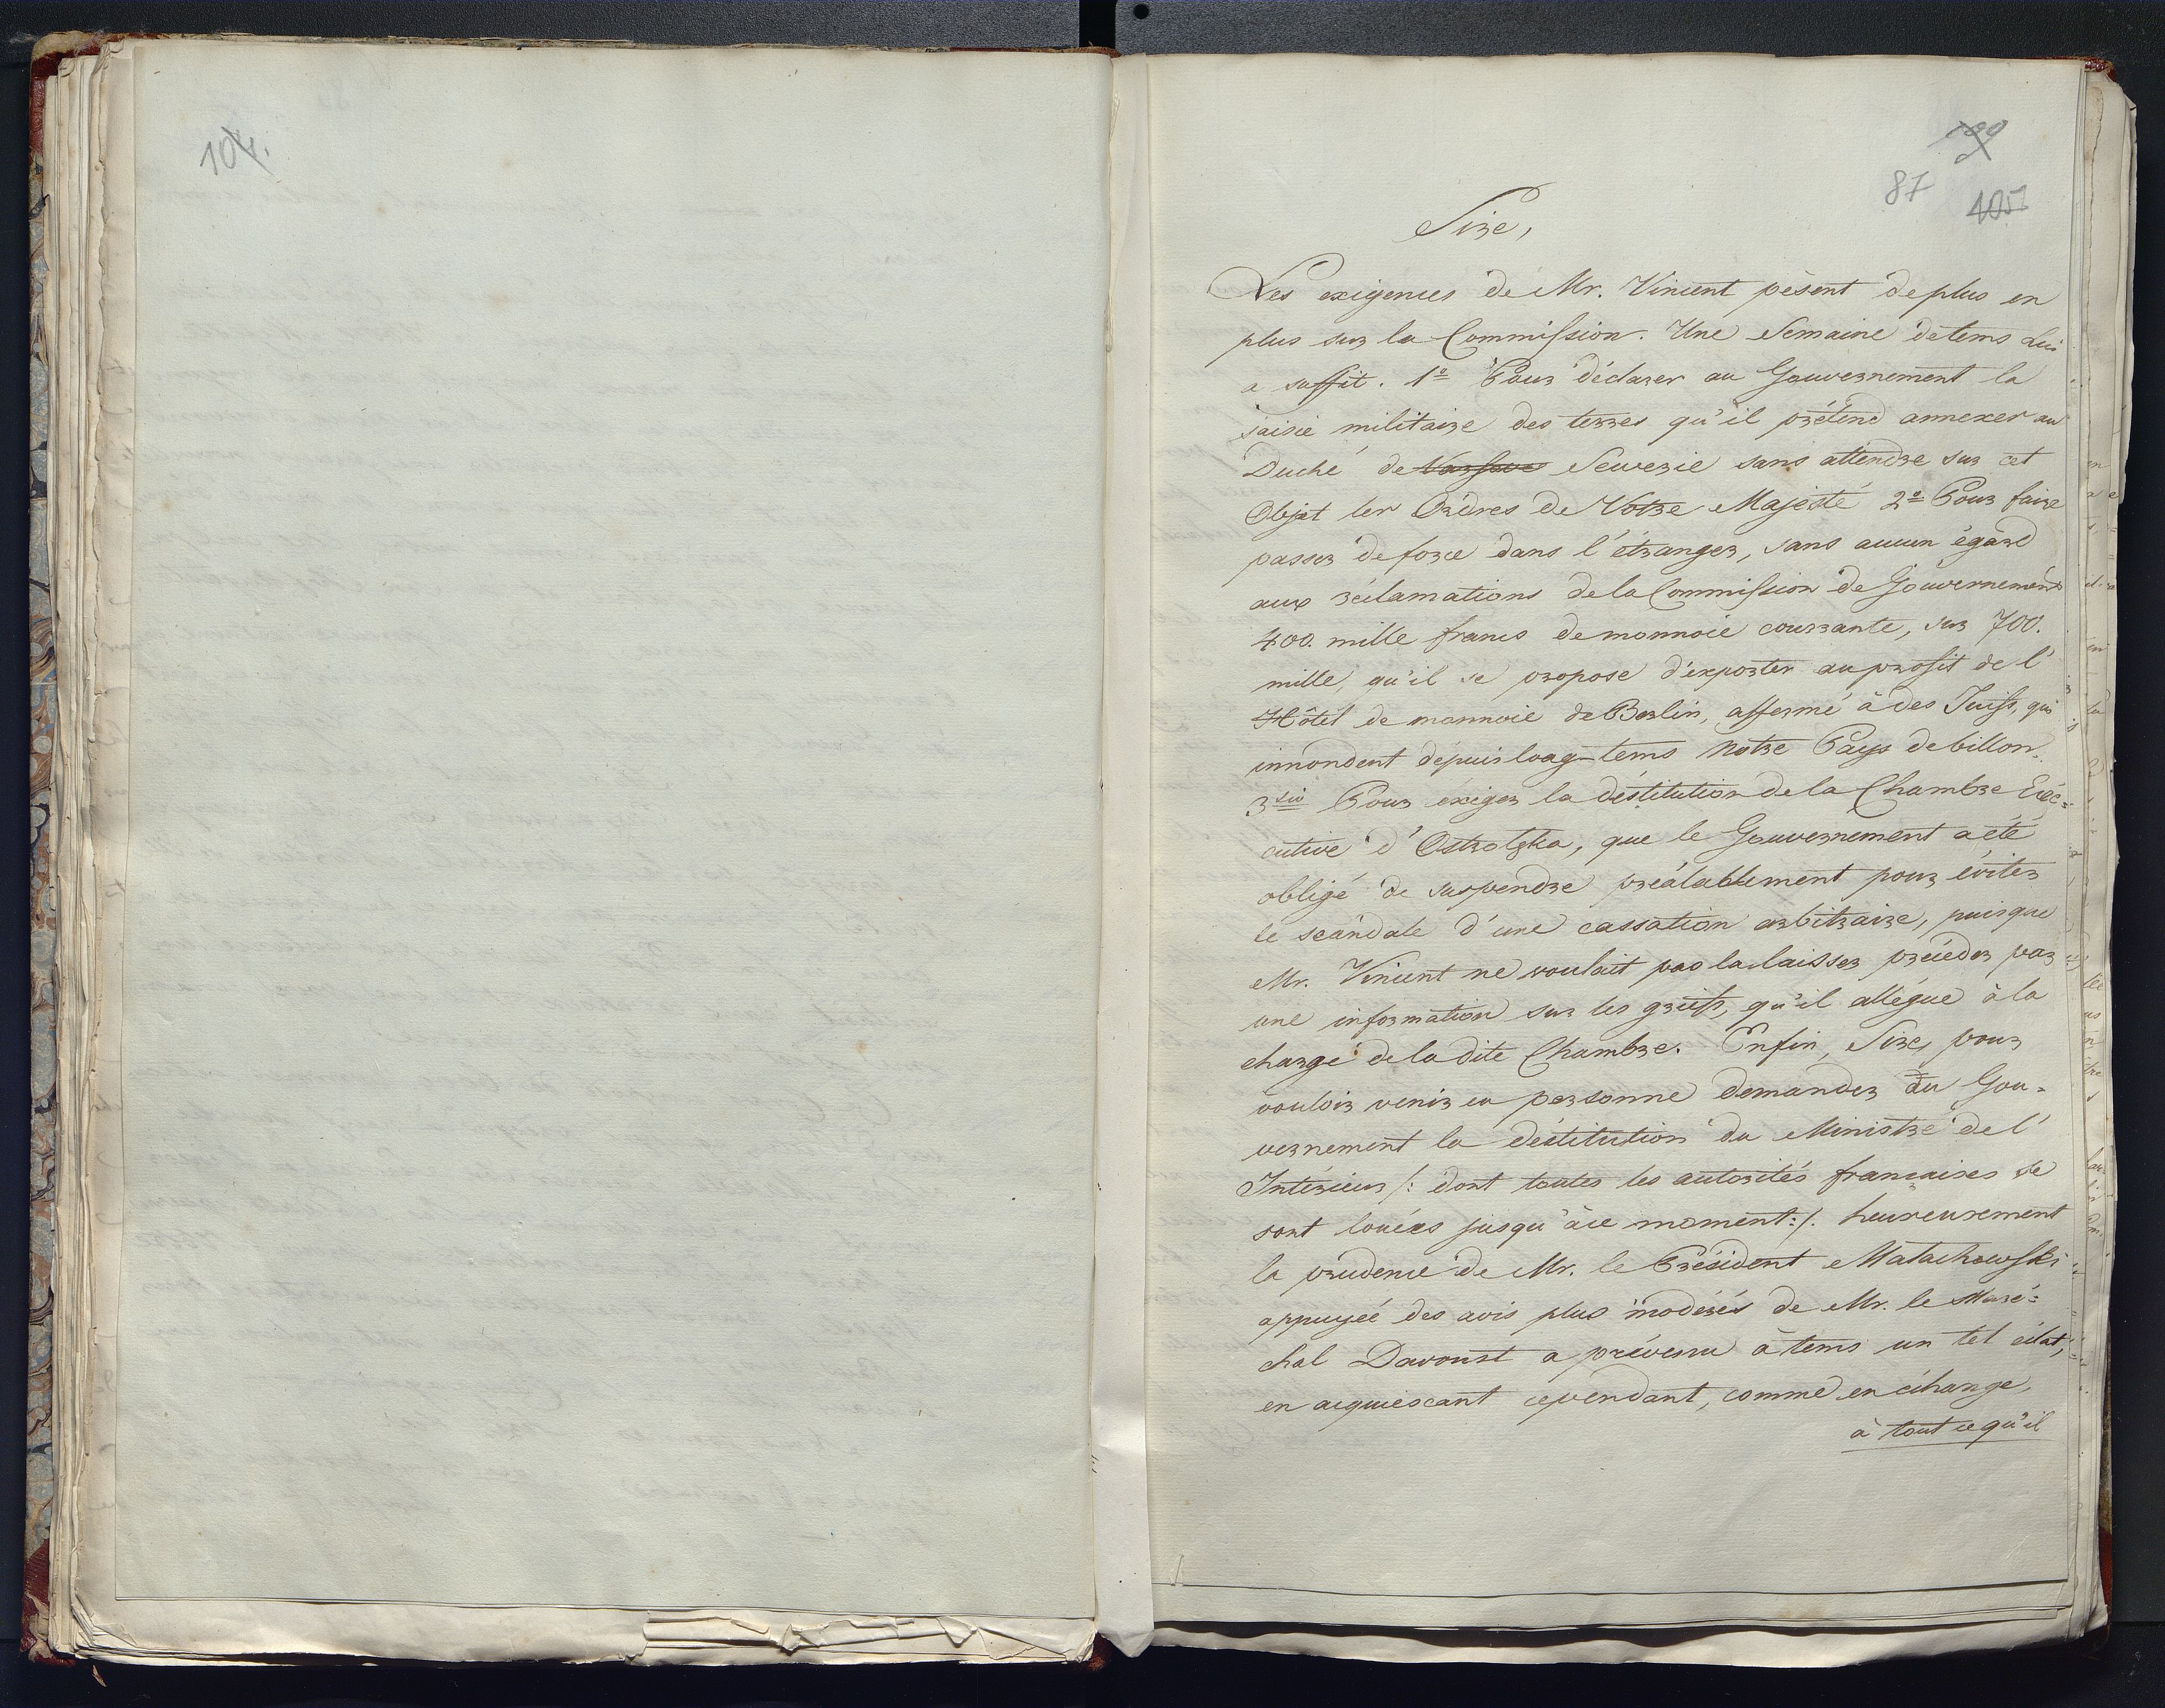 104.
199
87
105
Sire,
Les exigences de Mr. Vincent pèsent de plus en
plus sur la Commission. Une Semaine de tems lui
a suffit. 1º Pour déclarer au Gouvernement la
saisie militaire des terres qu'il prétend annexer au
Duché de Varsovie Sewerie sans attendre sur cet
Objet les Ordres de Votre Majesté 2º Pour faire
passer de force dans l'étranger, sans aucun égard
aux réclamations de la Commission de Gouvernement
400. mille francs de monnoie courrante, sur 700.
mille, qu'il se propose d'exporter au profit de l'
Hôtel de monnoie de Berlin, affermé à des Juifs, qui
innondent dépuis long-tems notre Pays de billon.
3tio Pour éxiger la déstitution de la Chambre Exé=
cutive d'Ostrolęka, que le Gouvernement a été
obligé de suspendre préalablement pour éviter
le scándale d'une cassation arbitraire, puisque
Mr. Vincent ne voulait pas la laisser précéder par
une information sur les griefs, qu'il allégue à la
charge de la dite Chambre. Enfin, Sire, pour
vouloir venir en personne demander au Gou=
vernement la déstitution du Ministre de l'
Intérieur /: dont toutes les autorités francaises se
sont louées jusqu'à ce moment:/. heureusement
la prudence de Mr. le Président Małachowski
appuyée des avis plus modérés de Mr. le Maré=
chal Davoust a prévenu à tems un tel éclat,
en acquiescant cependant, comme en échange,
à tout ce qu'il